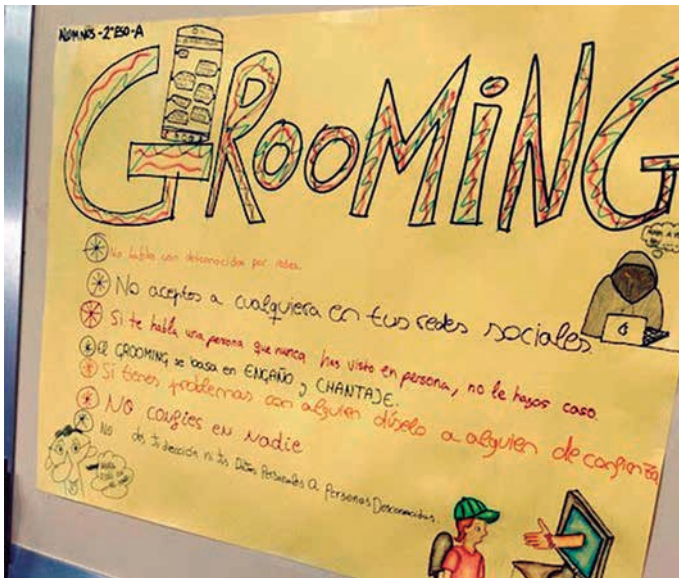 ALUMNOS - 2º ESO-A
GRooMiNG
No hables con desconocidos por redes.
No aceptes a cualquiera en tus redes sociales.
Si te habla una persona que nunca has visto en persona, no le hagas caso.
El GROOMING se basa en ENGAÑO y CHANTAJE.
Si tienes problemas con alguien díselo a alguien de confianza
NO confies en Nadie
No des tu dirección ni tus Datos Personales a Personas Desconocidas.